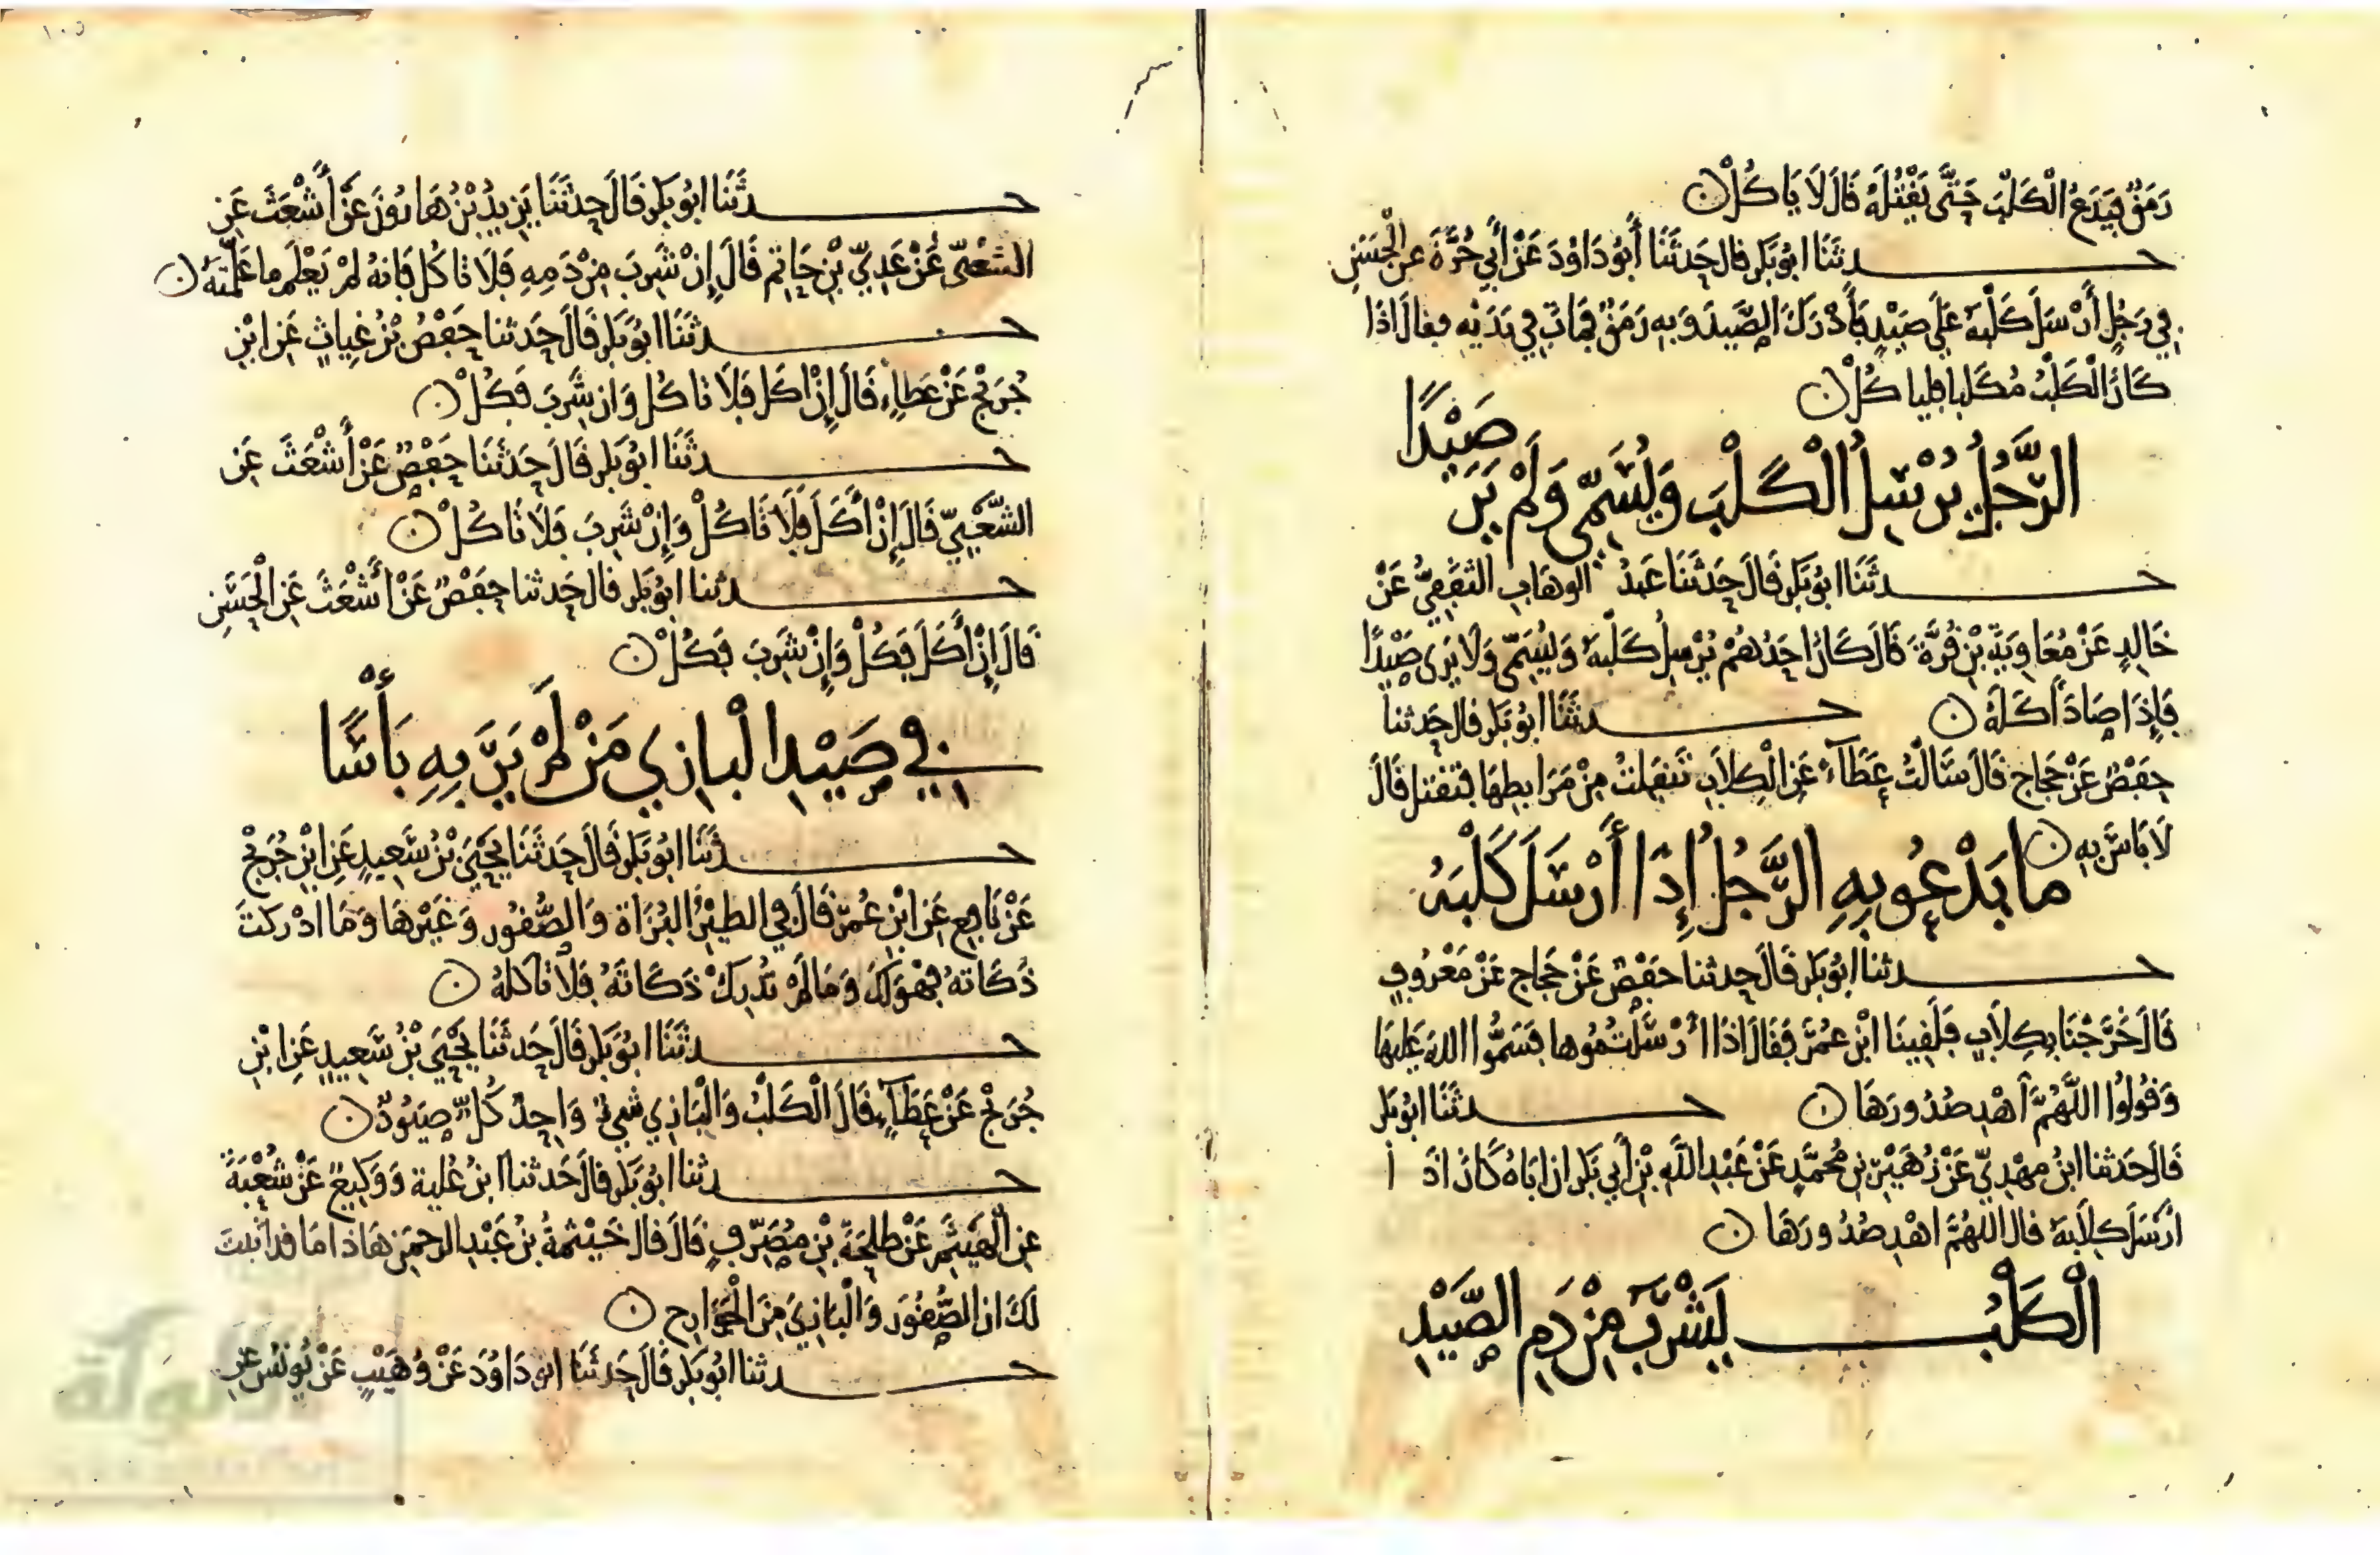 رَمَقٌ فَيَدَعُ الْكَلْبَ حَتَّى يَقْتُلَهُ قَالَ لَا يَاكُلْ
حـدثَنَا ابُو بَكرٍ قال حَدثَنَا أَبُو دَاوُدَ عَنْ أَبِي حُرَّةَ عن الْحَسَنِ
فِي رَجُلٍ أَرْسَلَ كَلْبَهُ عَلَى صَيْدٍ فَأَدْرَكَ الصَّيدَ وَبِهِ رَمَقٌ فَمَاتَ فِي يَدَيْهِ فقالَ اذَا
كَانَ الْكَلْبُ مُكَلبا فليا كُلْ
الرَّجُلُ يُرْسِلُ الْكَلْبَ وَيُسَمِّى وَلَمْ يَرَ صَيْدًا
حـدثَنَا ابُو بَكرٍ قَالَ حَدثَنَا عَبدُ الوهَابِ الثَقَفِيُّ عَنْ
خَالِدٍ عَنْ مُعَاوِيَةَ بْنِ قُرَّةَ قَالَ كَانَ احَدُهُمْ يُرْسِلُ كَلْبَهُ وَيُسَمِّى وَلَا يَرَى صَيْدًا
فَإِذَا صَادَ أَكَلَهُ حـدثَنَا ابُو بَكرٍ قال حَدثنا
حَفْصٌ عَنْ حَجاجٍ قَالَ سَالْتُ عَطَآءً عَنِ الْكِلَابِ تَنفَلتُ مِنْ مَرَابطِهَا فتقتل قَالَ
لَا بَاسَ بِهِ
مَا يَدْعُو بِهِ الرَّجُلُ إِذَا أَرْسَلَ كَلْبَهُ
حـدثنا ابُو بَكرٍ قَالَ حدثنا حفصٌ عَنْ حَجاجٍ عَنْ مَعْرُوفٍ
قَالَ خَرَجْنَا بِكِلَابٍ فَلَقِينَا ابْنَ عُمَرَ فَقَالَ اذَا أَرْسَلْتُمُوها فَسَمُّوا اللهَ عَلَيهَا
وَقُولُوا اللَّهُمَّ اهْدِ صُدُورَهَا حـدثَنَا ابُو بَكر
قَالَ حَدثنا ابنُ مهْدِيٍّ عَنْ زُهَيْرِ بنِ مُحمَّدٍ عَنْ عَبْدِ اللَّهِ بْنِ أَبِي بَكرٍ ان ابَاهُ كَانَ اذَ ا
ارْسَلَ كِلَابَهُ قال اللهُمَّ اهْدِ صُدُورَهَا
الْكَلْبُ يَشْرَبُ مِنْ دَمِ الصَّيْدِ
حـدثَنَا ابُو بَكرٍ قَالَ حدثَنَا يَزِيدُ بْنُ هَارُونَ عَنْ أَشْعَثَ عَنِ
الشَعْبِّى عَنْ عَدِيِّ بْنِ حَاتِمٍ قَالَ إِنْ شَرِبَ مِنْ دَمِهِ فَلَا تا كُل فَإنهُ لمْ يَعْلَم ما عَلَّمْتَهُ
حـدثَنَا ابُو بَكرٍ قَالَ حَدثنا حَفْصُ بْنُ غِياثٍ عَنِ ابْنِ
جُرَيْجٍ عَنْ عَطَاءٍ قَالَ إِنْ اكَلَ فَلَا تا كُلْ وَان شَرِبَ فَكُلْ
حـدثَنَا ابُو بَكرٍ قَالَ حَدثَنَا حَفْصٌ عَنْ أَشْعَثَ عَنِ
الشَّعْبِيِّ قَالَ إِنْ أَكَلَ فَلَا تَا كُلْ وَإِنْ شَرِبَ فَلَا تَا كُلْ
حـدثنا ابُو بَكرٍ قال حَدثنا حَفْصٌ عَنْ أَشْعَثَ عَنِ الْحَسَنِ
قَالَ إِنْ أَكَلَ فَكُلْ وَإِنْ شَرِبَ فَكُلْ
فِي صَيْدِ الْبازِي مَنْ لَمْ يَرَ بِهِ بَأْسًا
حـدثَنَا ابُو بَكرٍ قَالَ حَدثَنَا يَحْيَى بْنُ سَعِيدٍ عَنِ ابْنِ جُرَيْجٍ
عَنْ نَافِعٍ عَنِ ابْنِ عُمَرَ قَالَ فِي الطيْرِ الْبُزَاة وَالصُّقُورِ وَغَيْرِهَا وَمَا ادْرَكتَ
ذَكَاتهُ فَهْوَ لَكَ وَمَا لَمْ تُدْرِكْ ذَكَاتَهُ فَلَا تَاكلهُ
حـدثَنَا ابُو بَكرٍ قَالَ حَدثَنَا يَحْيَى بْنُ سَعِيدٍ عَنِ ابْنِ
جُرَيْجٍ عَنْ عَطَآءٍ قَالَ الْكَلْبُ وَالْبَازِي شيءٌ وَاحِدٌ كُلٌّ صَيُودٌ
حـدثنا ابُو بَكرٍ قال حَدثنا ابنُ عُلَية وَوَكِيعٌ عَنْ شُعْبَةَ
عن الْهَيْثَمِ عَنْ طلحَةَ بْنِ مُصَرِّفٍ قَالَ قال خَيْثمةُ بْنُ عَبْدِ الرحمَنِ هَاذَا مَا قد اثبتُ
لَكَ ان الصُّقُورَ وَالْبَازِيَ مِنَ الْجَوَارِحِ
حـدثنا ابُو بَكرٍ قَالَ حَدثَنَا ابُو دَاوُدَ عَنْ وُهَيْبٍ عَنْ يُونُسَ عنِ
الألوكة